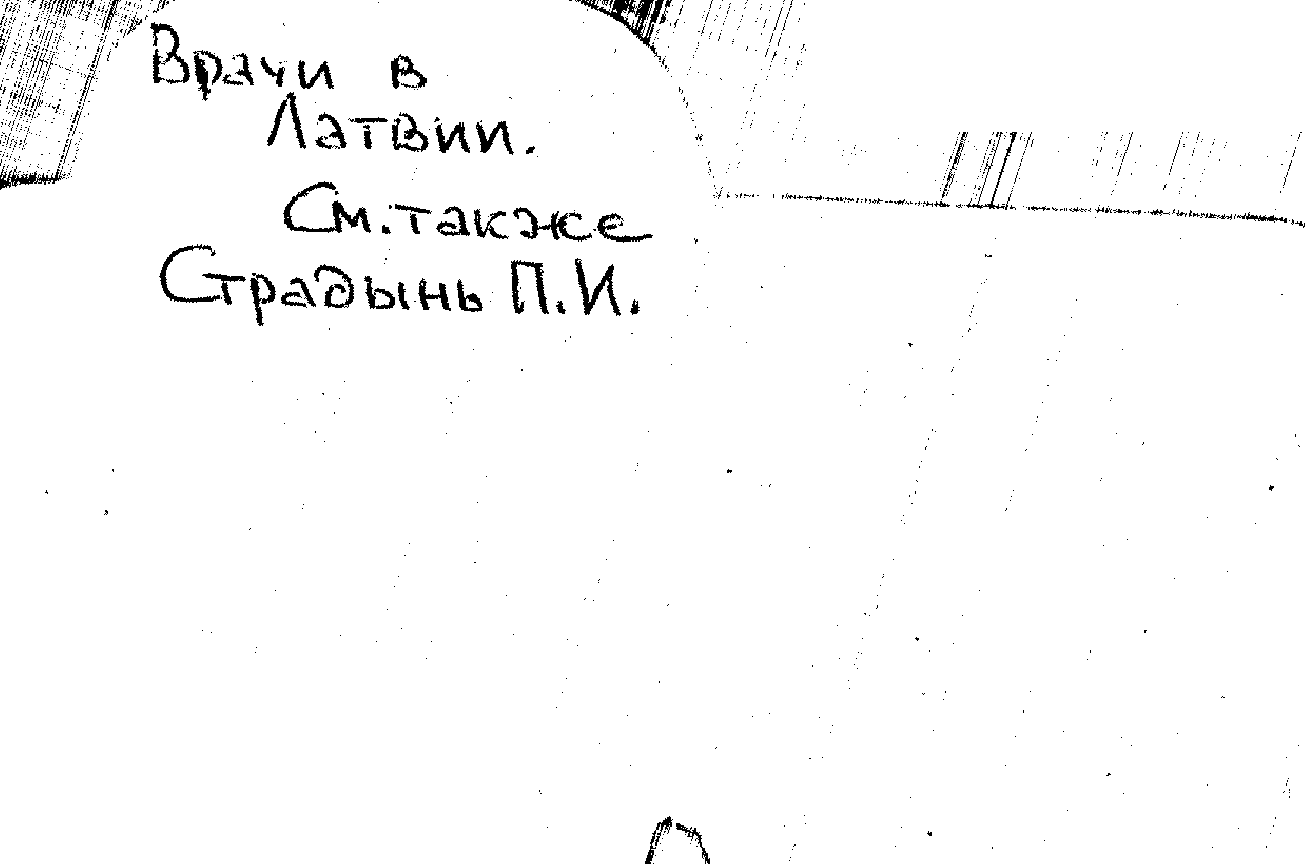 Врачи в
Латвии.
См. также
Страдынь П.И.